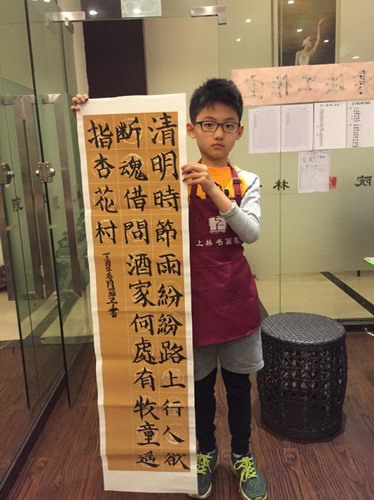 清明時節雨紛紛路上行人欲
断魂借問酒家何處有牧童遥
指杏花村
上林书画
林
院